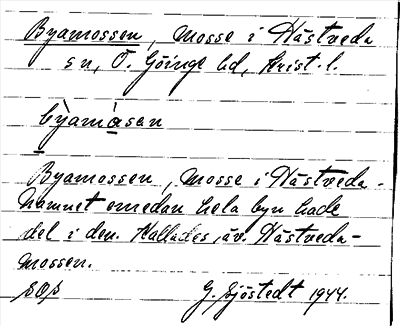 Byamossen, mosse i Hästveda
sn, Ö. Göinge hd, Krist. l.
bỳamȧ̀sen
Byamossen, mosse i Hästveda -
namnet emedan hela byn hade
del i den. Kallades, äv. Hästveda-
mossen.
G. Sjöstedt 1944.